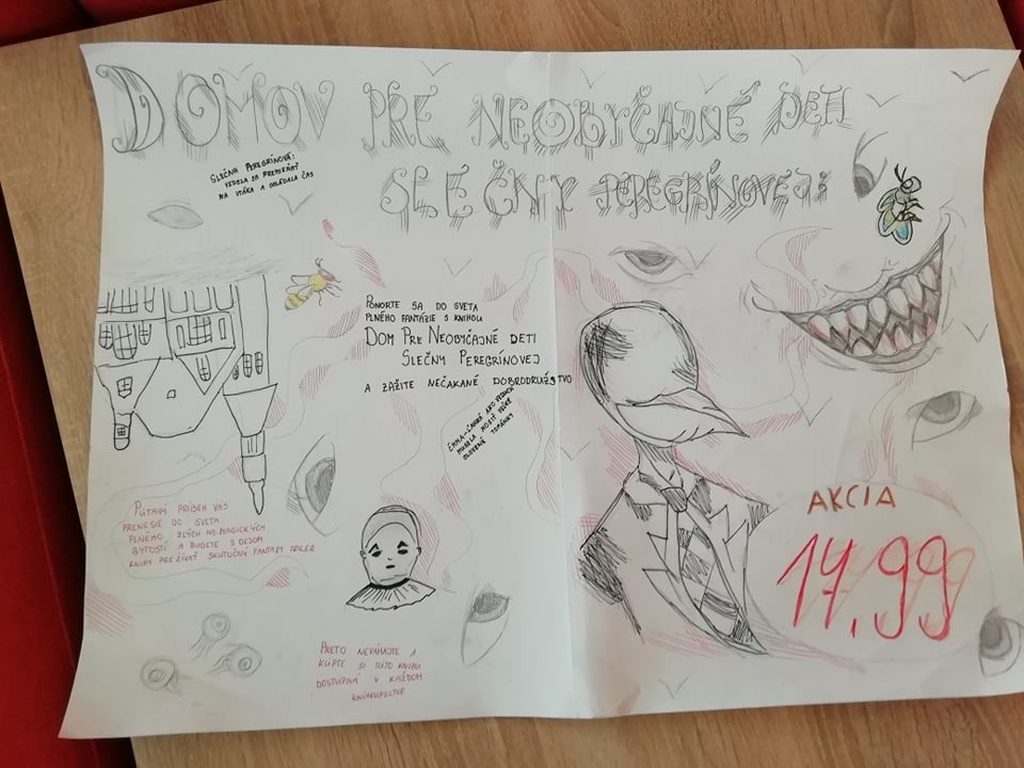 DOMOV PRE NEOBYČAJNÉ DETI
SLEČNY PEREGRÍNOVEJ
SLEČNA PEREGRÍNOVÁ:
VEDELA SA PREMIENAŤ
NA VTÁKA A OVLÁDALA ČAS
PONORTE SA DO SVETA
PLNÉHO FANTÁZIE S KNIHOU
DOM PRE NEOBYČAJNÉ DETI
SLEČNY PEREGRÍNOVEJ
A ZAŽITE NEČAKANÉ DOBRODRUŽSTVO
EMMA-ĽAHKÁ AKO VZDUCH
MUSELA NOSIŤ ŤAŽKÉ
OLOVENÉ TOPÁNKY
PÚTAVÝ PRÍBEH VÁS
PRENESIE DO SVETA
PLNÉHO ZLÝCH NO MAGICKÝCH
BYTOSTÍ A BUDETE S DEJOM
KNIHY PREŽÍVAŤ SKUTOČNÝ FANTASY TRILER
AKCIA
14,99
PRETO NEVÁHAJTE A
KÚPTE SI TÚTO KNIHU
DOSTUPNÁ V KAŽDOM
KNÍHKUPECTVE